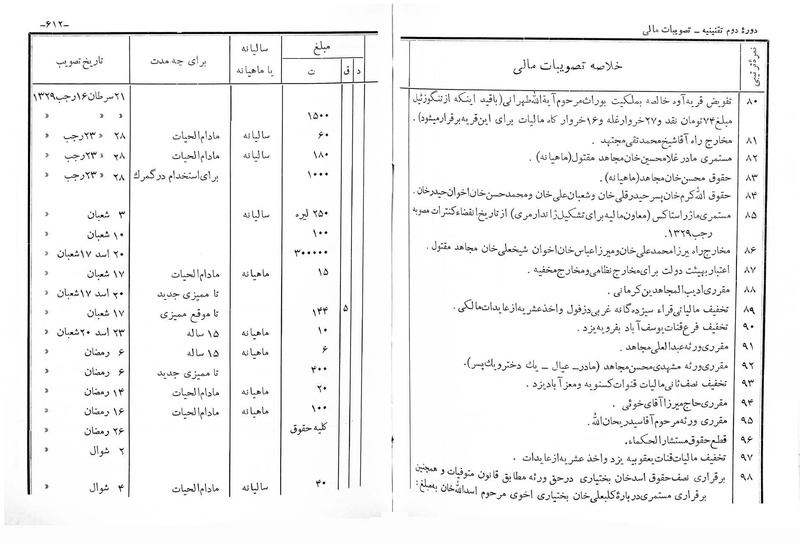 دورهٔ دوم تقنینیه ـ تصویبات مالی
نمرهٔ ترتیبی
خلاصه تصویبات مالی
۸۰ تفویض قریه آوه خالصه بملکیت بوراث مرحوم آیةالله طهرانی (باقید اینکه از تنگوزئیل
مبلغ ۷۴ تومان نقد و ۲۷ خروار غله و ۱۶ خروار کاه مالیات برای این قریه برقرار میشود).
۸۱ مخارج راه آقا شیخ محمد تقی مجتهد.
۸۲ مستمری مادر غلامحسین خان مجاهد مقتول (ماهیانه).
۸۳ حقوق محسن خان مجاهد (ماهیانه).
۸۴ حقوق الله کرم خان پسر حیدرقلی خان و شعبان علی خان و محمد حسن خان اخوان حیدر خان.
۸۵ مستمری ماژر استاکس (معاون مالیه برای تشکیل ژاندارمری) از تاریخ انقضاء کنترات مصوبه
رجب ۱۳۲۹.
۸۶ مخارج راه میرزا محمد علی خان و میرزا عباس خان اخوان شیخعلی خان مجاهد مقتول.
۸۷ اعتبار بهیئت دولت برای مخارج نظامی و مخارج مخفیه.
۸۸ مقرری ادیب المجاهدین کرمانی.
۸۹ تخفیف مالیاتی قراء سیزده گانه غربی دزفول و اخذ عشریه از عایدات مالکی.
۹۰ تخفیف فرع قنات یوسف آباد بفرویه یزد.
۹۱ مقرری ورثه عبدالعلی مجاهد.
۹۲ مقرری ورثه مشهدی محسن مجاهد (مادر ـ عیال ـ یك دختر و یك پسر).
۹۳ تخفیف نصف ثانی مالیات قنوات کسنویه و معز آباد یزد.
۹۴ مقرری حاج میرزا آقای خوئی.
۹۵ مقرری ورثه مرحوم آقا سید ریحان الله.
۹۶ قطع حقوق مستشار الحکماء.
۹۷ تخفیف مالیات قنات یعقوبیه یزد و اخذ عشریه از عایدات.
۹۸ برقراری نصف حقوق اسد خان بختیاری در حق ورثه مطابق قانون متوفیات و همچنین
برقراری مستمری دربارهٔ کلبعلی خان بختیاری اخوی مرحوم اسدالله خان به مبلغ:
ـ۶۱۲ـ
مبلغ
سالیانه یا ماهیانه
برای چه مدت
تاریخ تصویب
د ق ت
۲۱ سرطان ۱۶ رجب ۱۳۲۹
۱۵۰۰ » » »
۶۰ سالیانه مادام الحیات ۲۸ » ۲۳ رجب »
۱۸۰ سالیانه مادام الحیات ۲۸ » ۲۳ رجب »
۱۰۰۰ برای استخدام در گمرك ۲۸ » ۲۳ رجب »
۲۵۰ لیره سالیانه ۳ شعبان »
۱۰۰ ۱۰ شعبان »
۳۰۰۰۰۰ ۲۰ اسد ۱۷ شعبان »
۱۵ ماهیانه مادام الحیات ۱۷ شعبان »
تا ممیزی جدید ۲۰ اسد ۱۷ شعبان »
۵ ۱۴۴ تا موقع ممیزی ۱۷ شعبان »
۱۰ ماهیانه ۱۵ ساله ۲۳ اسد ۲۰ شعبان »
۶ ماهیانه ۱۵ ساله ۶ رمضان »
۴۰۰ تا ممیزی جدید ۶ رمضان »
۲۰ ماهیانه مادام الحیات ۱۴ رمضان »
۱۰۰ ماهیانه مادام الحیات ۱۶ رمضان »
کلیه حقوق ۲۶ رمضان »
۲ شوال »
۴۰ سالیانه مادام الحیات ۴ شوال »